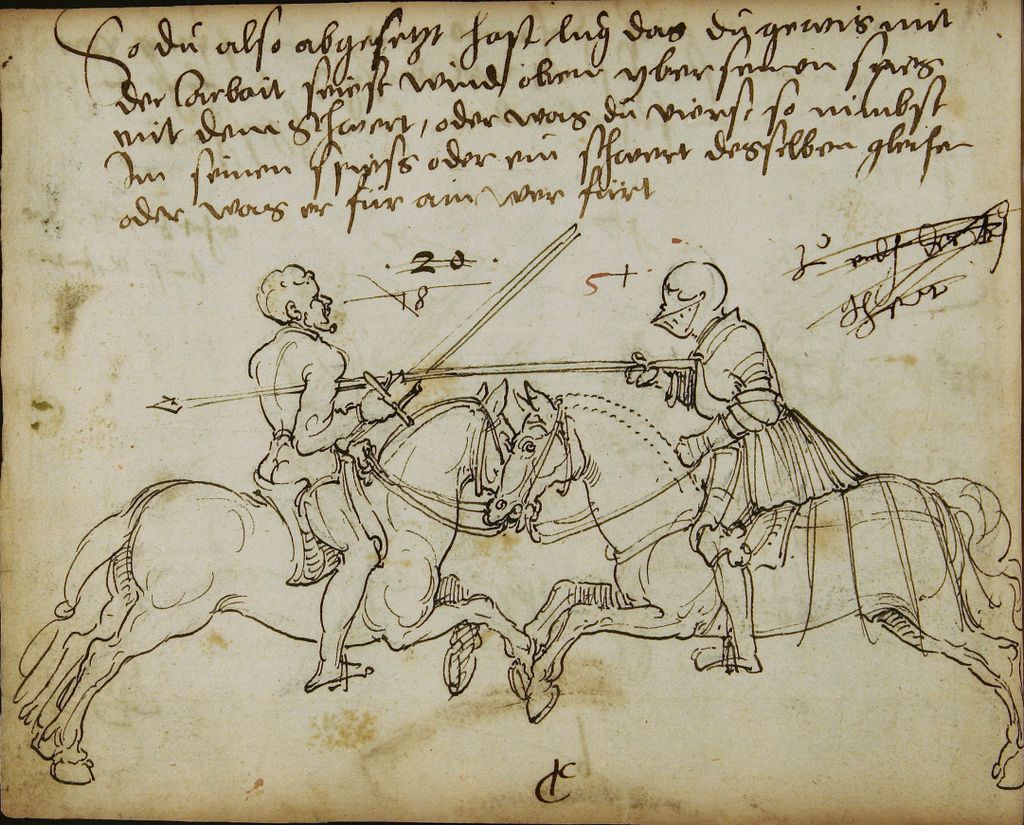 So dŭ also abgesetzt hast lŭg das dŭ gewis mit
der Arbait seiest wind oben yber seinen spies
mit dem Schwert, oder was dŭ vierst so nimbst
Im seinen spiess oder ein schwert desselben gleichen
oder was er fŭr ain wer fŭrt
20
18
51